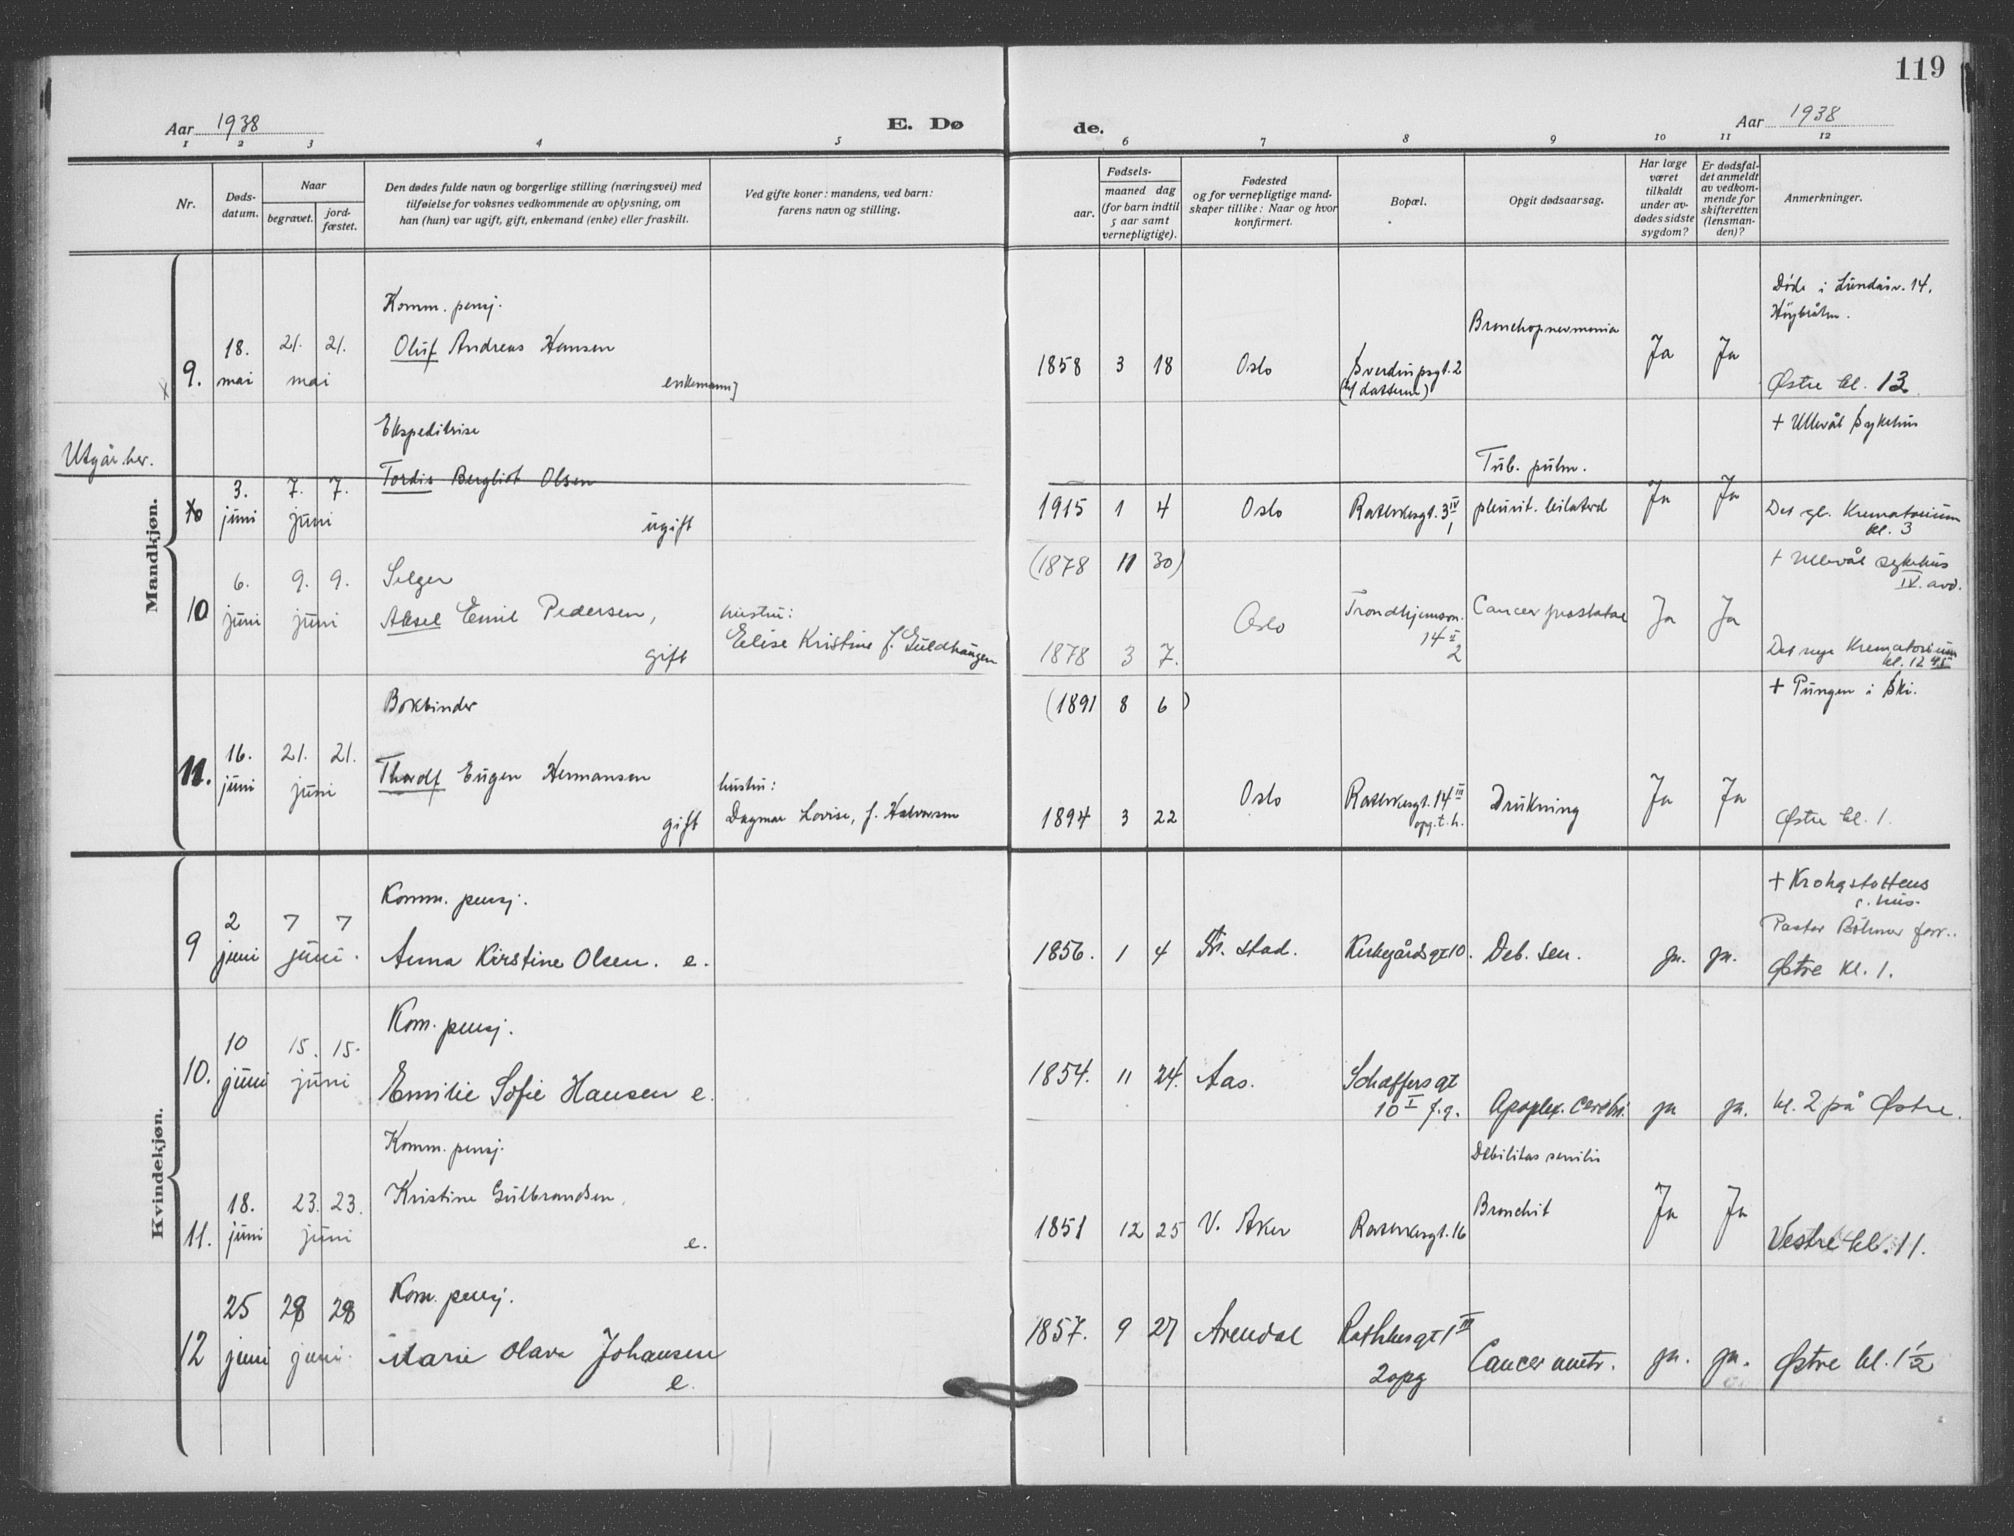 119
Aar 1938
E. Døde.
Aar 1938
1 2 3 4 5 6 7 8 9 10 11 12
Nr.
Døds-
datum.
Naar
begravet.
jord-
fæstet.
Den dødes fulde navn og borgerlige stilling (næringsvei) med
tilføielse for voksnes vedkommende av oplysning, om
han (hun) var ugift, gift, enkemand (enke) eller fraskilt.
Ved gifte koner: mandens, ved barn:
farens navn og stilling.
Fødsels-
aar.
maaned dag
(for barn indtil
5 aar samt
vernepligtige).
Fødested
og for vernepligtige mand-
skaper tillike: Naar og hvor
konfirmert.
Bopæl.
Opgit dødsaarsag.
Har læge
været
tilkaldt
under av-
dødes sidste
sygdom?
Er dødsfal-
det anmeldt
av vedkom-
mende for
skifteretten
(lensman-
den)?
Anmerkninger.
Mandkjøn.
9. 18. mai 21. 21. mai
Komm. pensj.
Oluf Andreas Hansen
enkemann
1858 3 18 Oslo
Sverdrupsgt. 2
(h/ datteren)
Bronchopnevmonia
Ja Ja
Døde i Lundåsv. 14,
Høybråten.
Østre kl. 13
Utgår her.
10 3. juni 7. 7. juni
Ekspeditrise
Tordis Bergliot Olsen
ugift
1915 1 4 Oslo
Rathkesgt. 3 IV
1
Tub. pulm.
pleurit. bilateral
Ja Ja
+ Ullevål Sykehus
Det gl. Krematorium
kl. 3
10 6. juni 9. 9. juni
Selger
Aksel Emil Pedersen,
gift
hustru:
Elise Kristine f. Guldhaugen
(1878 11 30)
1878 3 7.
Oslo
Trondhjemsvn.
14 II
2
Cancer prostatae
Ja Ja
+ Ullevål sykehus
IV. avd.
Det nye Krematorium
kl. 12 45
11. 16. juni 21. 21. juni
Bokbinder
Thorolf Eugen Hermansen
gift
hustru:
Dagmar Lovise, f. Halvorsen
(1891 8 6)
1894 3 22
Oslo
Rathkesgt. 14 III
opg. t. h.
Drukning
Ja Ja
+ Pungen i Ski.
Østre kl. 1.
Kvindekjøn.
9 2 juni 7 7 juni.
Komm. pensj.
Anna Kirstine Olsen. e.
1856. 1 4 Fr. stad.
Kirkegårdsgt 10.
Deb. sen.
ja. ja.
+ Krohgstøttens
s. hus.
Pastor Böhmer forr..
Østre kl. 1.
10. 10 juni 15. 15. juni
Kom. pensj.
Emilie Sofie Hansen e.
1854. 11 24. Aas.
Schäffersgt
10 I f.g.
Apoplex. cerebri.
ja ja.
kl. 2 på Østre.
11. 18. juni 23. 23. juni
Komm. pensj.
Kristine Gulbrandsen,
e.
1851 12 25 V. Aker
Rathkesgt. 16
Debilitas senilis
Bronchit
Ja Ja
Vestre kl. 11.
12 25 juni 28 28 juni.
Kom. pensj.
Marie Olava Johansen
e.
1857. 9 27 Arendal
Rathkesgt 1 III
2 opg
Cancer
ja. ja.
Østre kl. 1 1/2